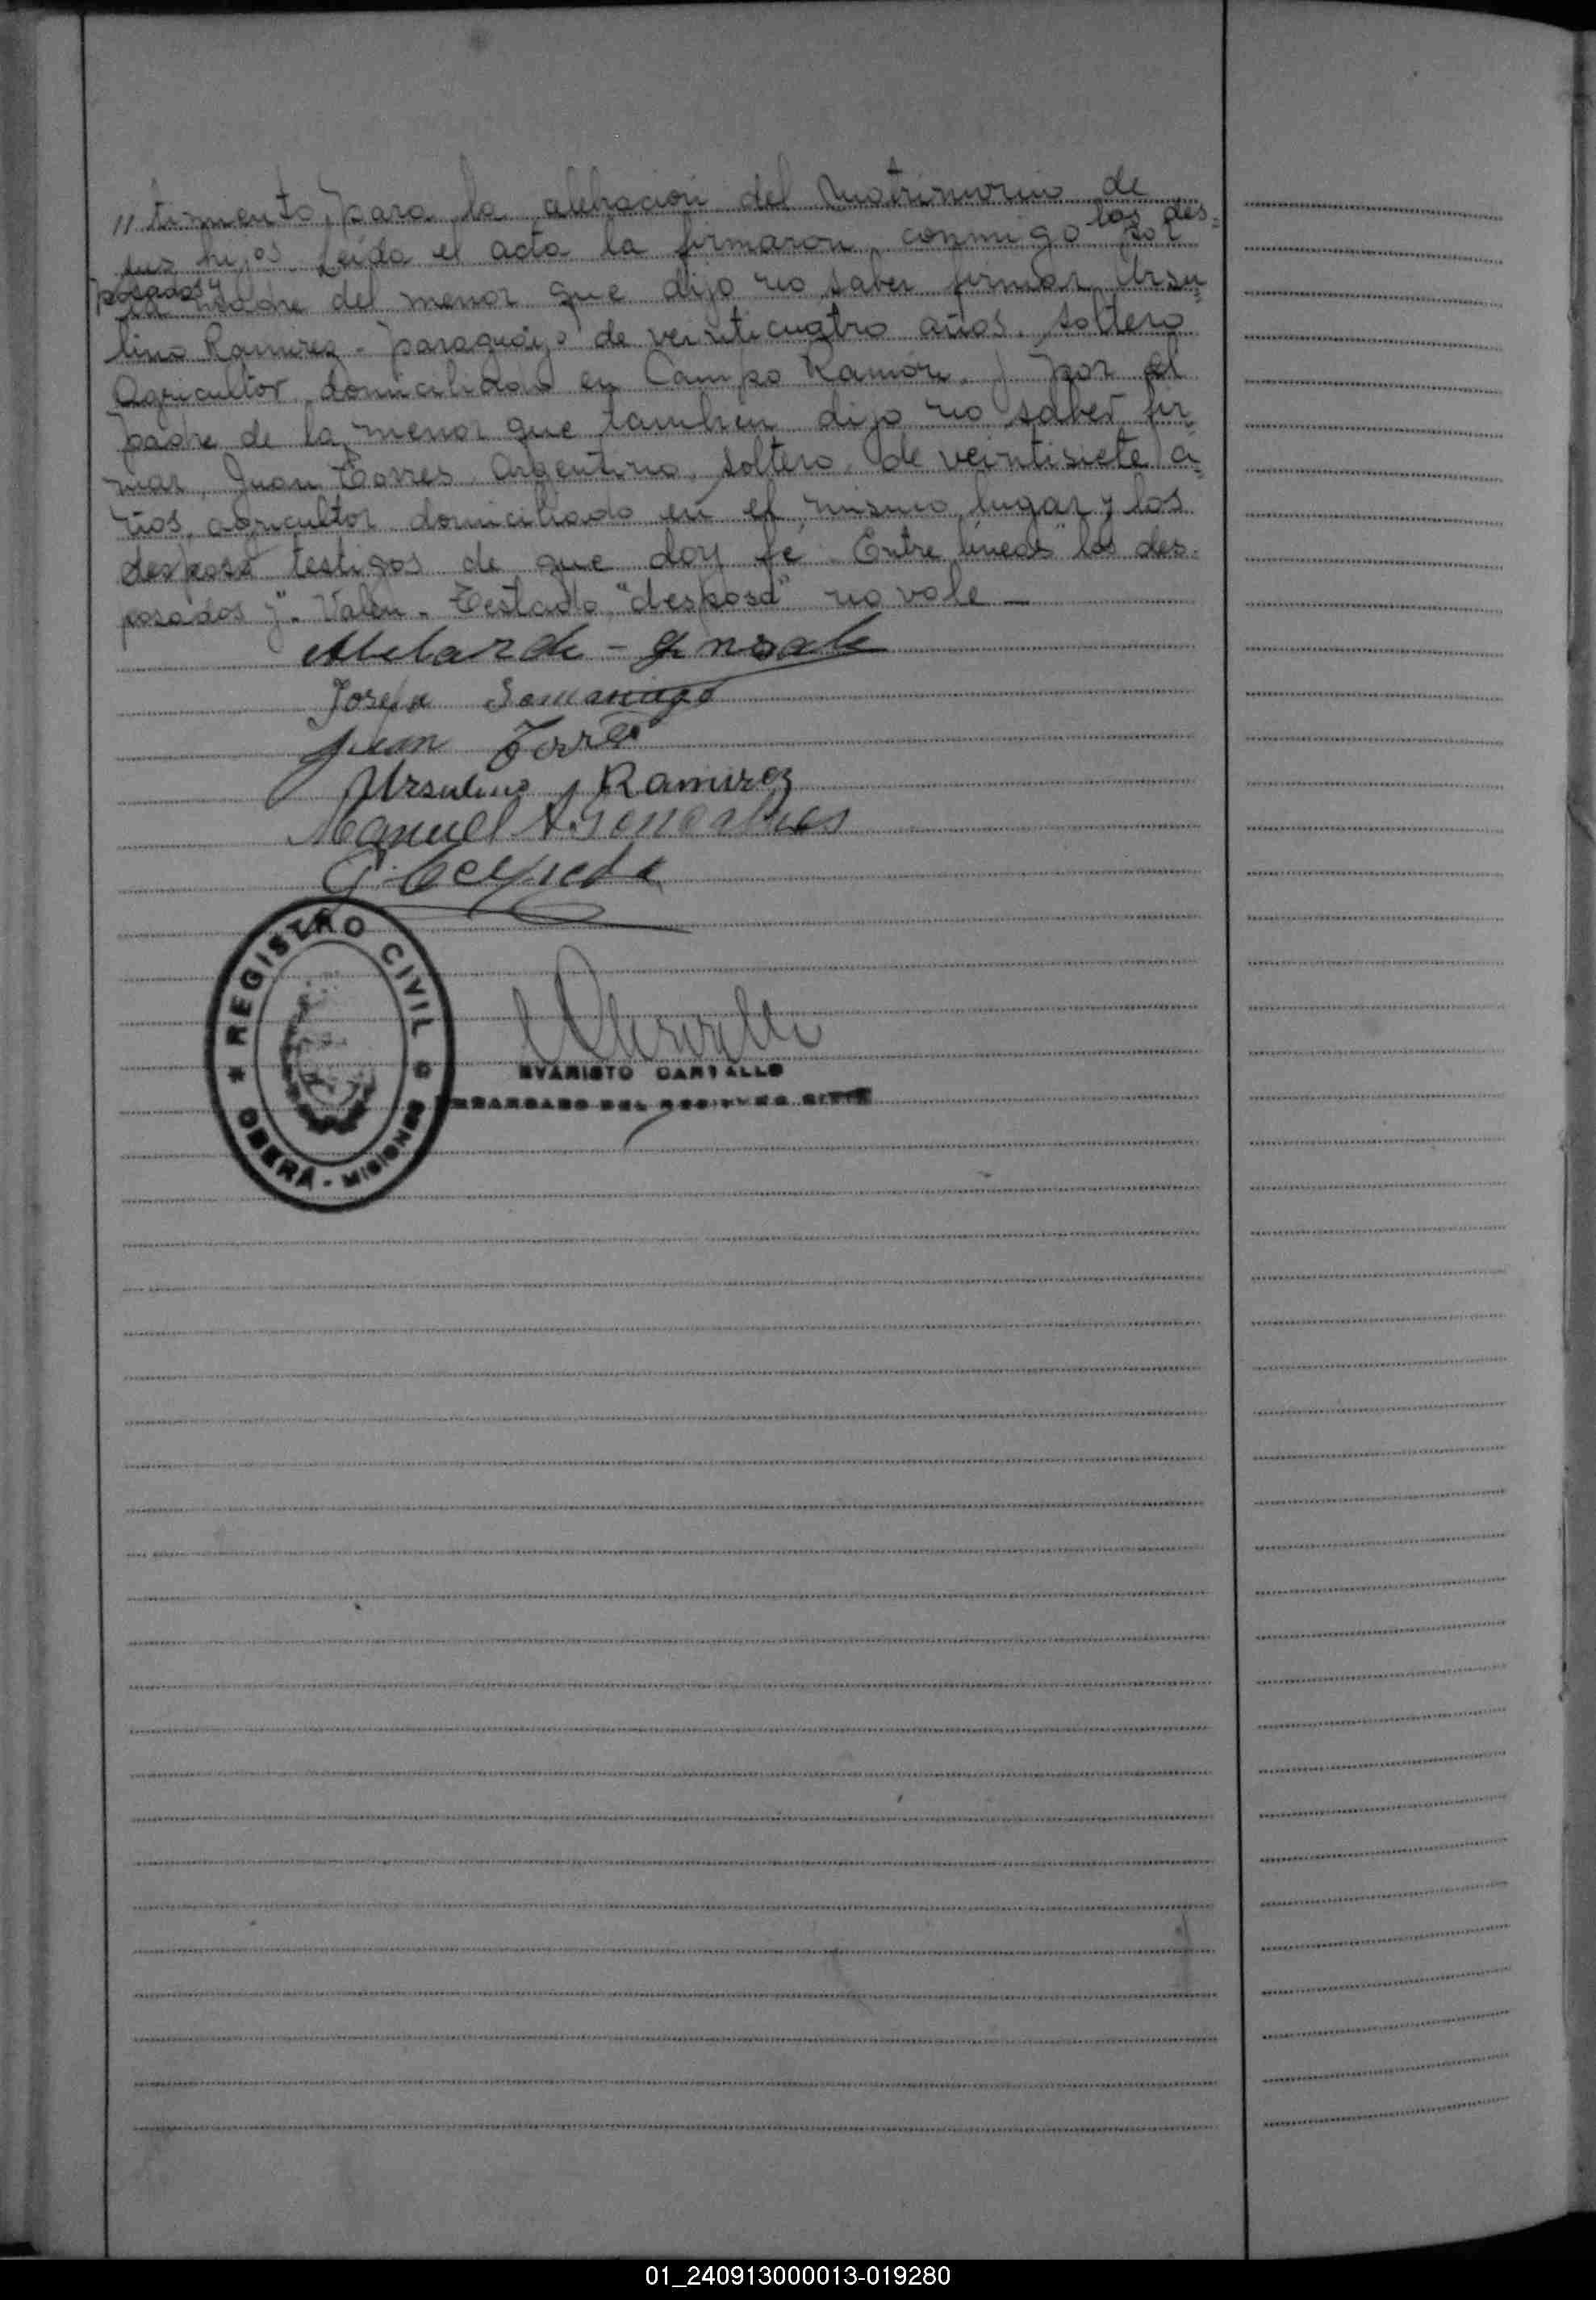 " timiento, para la celebración del Matrimonio de
sus hijos. Leída el acta la firmaron conmigo los des-
posados y por
la madre del menor que dijo no saber firmar Ursu-
lino Ramirez - paraguayo de veinticuatro años, soltero
Agricultor domiciliado en Campo Ramón y por el
padre de la menor que tambien dijo no saber fir-
mar, Juan Torres, Argentino, soltero, de veintisiete a-
ños, agricultor domiciliado en el mismo lugar y los
desposa testigos de que doy fé. Entre líneas "los des-
posados y". Valen. Testado "desposa" no vale —
Abelardo - 
Josefa Samaniego
Juan Torres
Ursulino Ramirez
Manuel A.
REGISTRO CIVIL
OBERÁ - MISIONES
EVARISTO
ENCARGADO DEL REGISTRO CIVIL
01_240913000013-019280